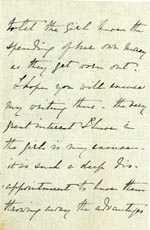 to let the girl have the
spending of her own money
as they get over out?
I hope you will excuse
my writing thus - the very
great interest I have in
the girls is my excuse -
it is such a deep dis-
appointment to have them
throwing away the advantages